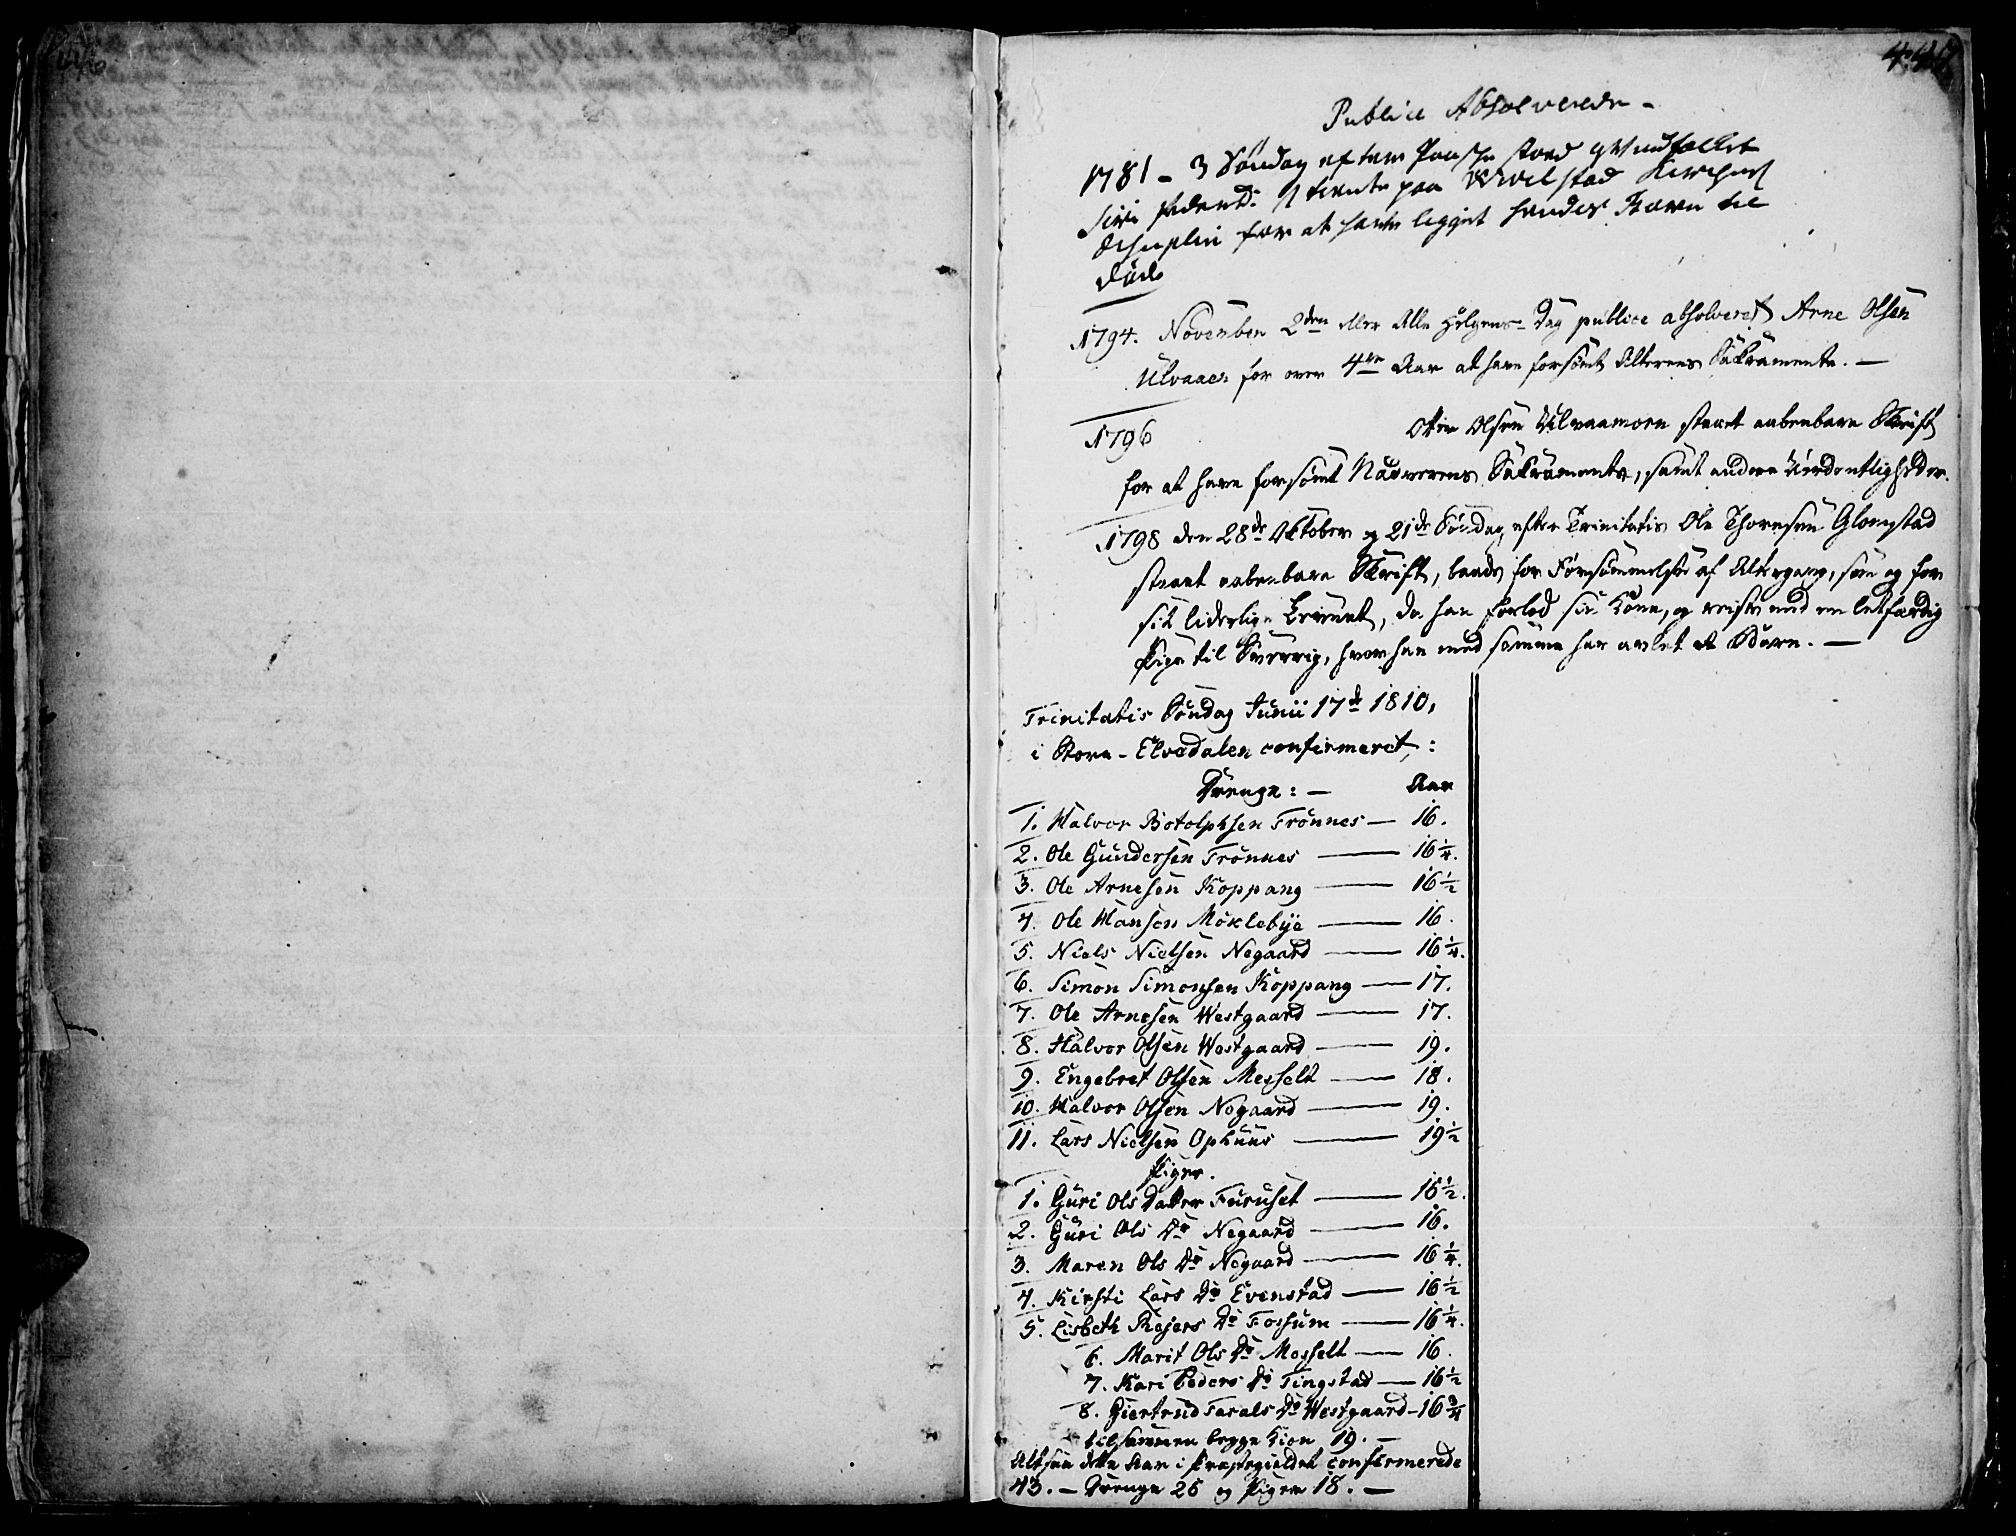 447
Publice Absolverede -
1781 - 3 Søndag efter Paaske stoed
Siri Pedersd: paa Kirches
disciplin for at have ligget hendes Barn til
døde
1794. November 2den eller Alle Helgens-Dag publice absolveret Arne Olsen
Ulvaaen for over 4re Aar at have forsømt Alterens Sakramente. -
1796 Olsen Ulvaamoen staaet aabenbare Skrift
for at have forsømt Nadverens Sakramente, samt andre Uordentligheder.
1798 den 28de Oktober og 21de Søndag efter Trinitatis Ole Thoresen Glomstad
staaet aabenbare Skrift, baade for Forsømmelse af Altergang, som og for
sit liderlige Levnet, da han forlod sin Kone, og reiste med en letfærdig
Pige til Sverrig, hvor han med samme har avlet et Barn. -
Trinitatis Søndag Junii 17de 1810,
i Store-Elvedalen confirmeret:
Drenge: - Aar
1. Halvor Botolphsen Trønnes - 16.
2. Ole Gundersen Trønnes - 16 1/4.
3. Ole Arnesen Koppang - 16 1/2
4. Ole Hansen Møklebye - 16.
5. Niels Nielsen Negaard - 16 1/4.
6. Simon Simonsen Koppang - 17.
7. Ole Arnesen Westgaard - 17.
8. Halvor Olsen Westgaard - 19.
9. Engebret Olsen Messelt - 18.
10. Halvor Olsen Negaard - 19.
11. Lars Nielsen Ophuus - 19 1/2
Piger.
1. Guri Ols Datter Furuset - 16 1/2.
2. Guri Ols Dr Negaard - 16.
3. Maren Ols Dr Negaard - 16 1/4.
4. Kirsti Lars Dr Evenstad - 16 1/2
5. Lisbeth Rejers Dr Fossum - 16 1/4.
6. Marit Ols Dr Messelt - 16.
7. Kari Peders Dr Tingstad - 16 1/2
8. Giertrud Tarals Dr Westgaard - 16 3/4
tilsammen begge Kiøn 19. -
Altsaa dette Aar i Præstegieldet confirmerede
43. - Drenge 25 og Piger 18. -